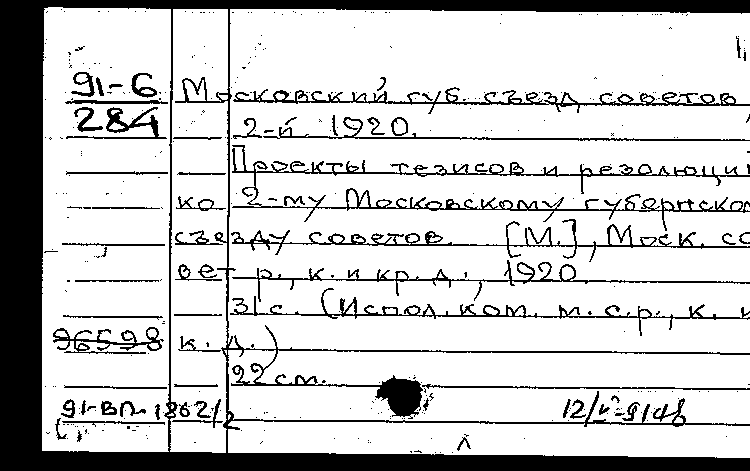 91-6 Московский губ. съезд советов,
284 2-й 1920.
Проекты тезисов и резолюций
ко 2-му Московскому губернско
съезду советов. [М.], Моск. со
вет р., к. и кр. д., 1920.
31 с. (Испол. ком. м. с. р., к. и
96598 к. д.)
22 см.
91-вп. 1862/2